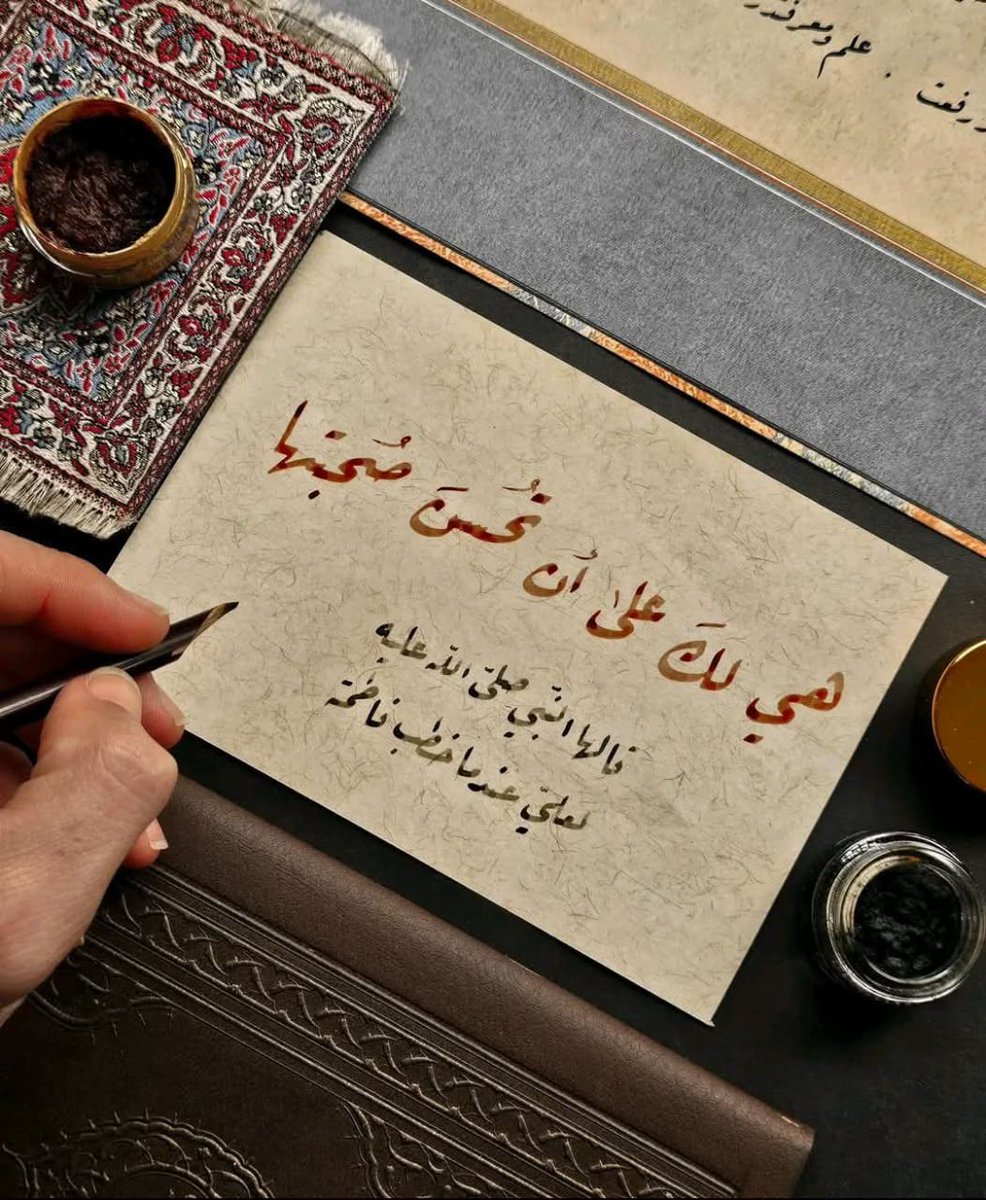 علم ومعرفتدر
رفعت
هي لكَ على أن تُحسنَ صُحبتها
قالها النبي صلى الله عليه
لعليّ عندما خطب فاطمة